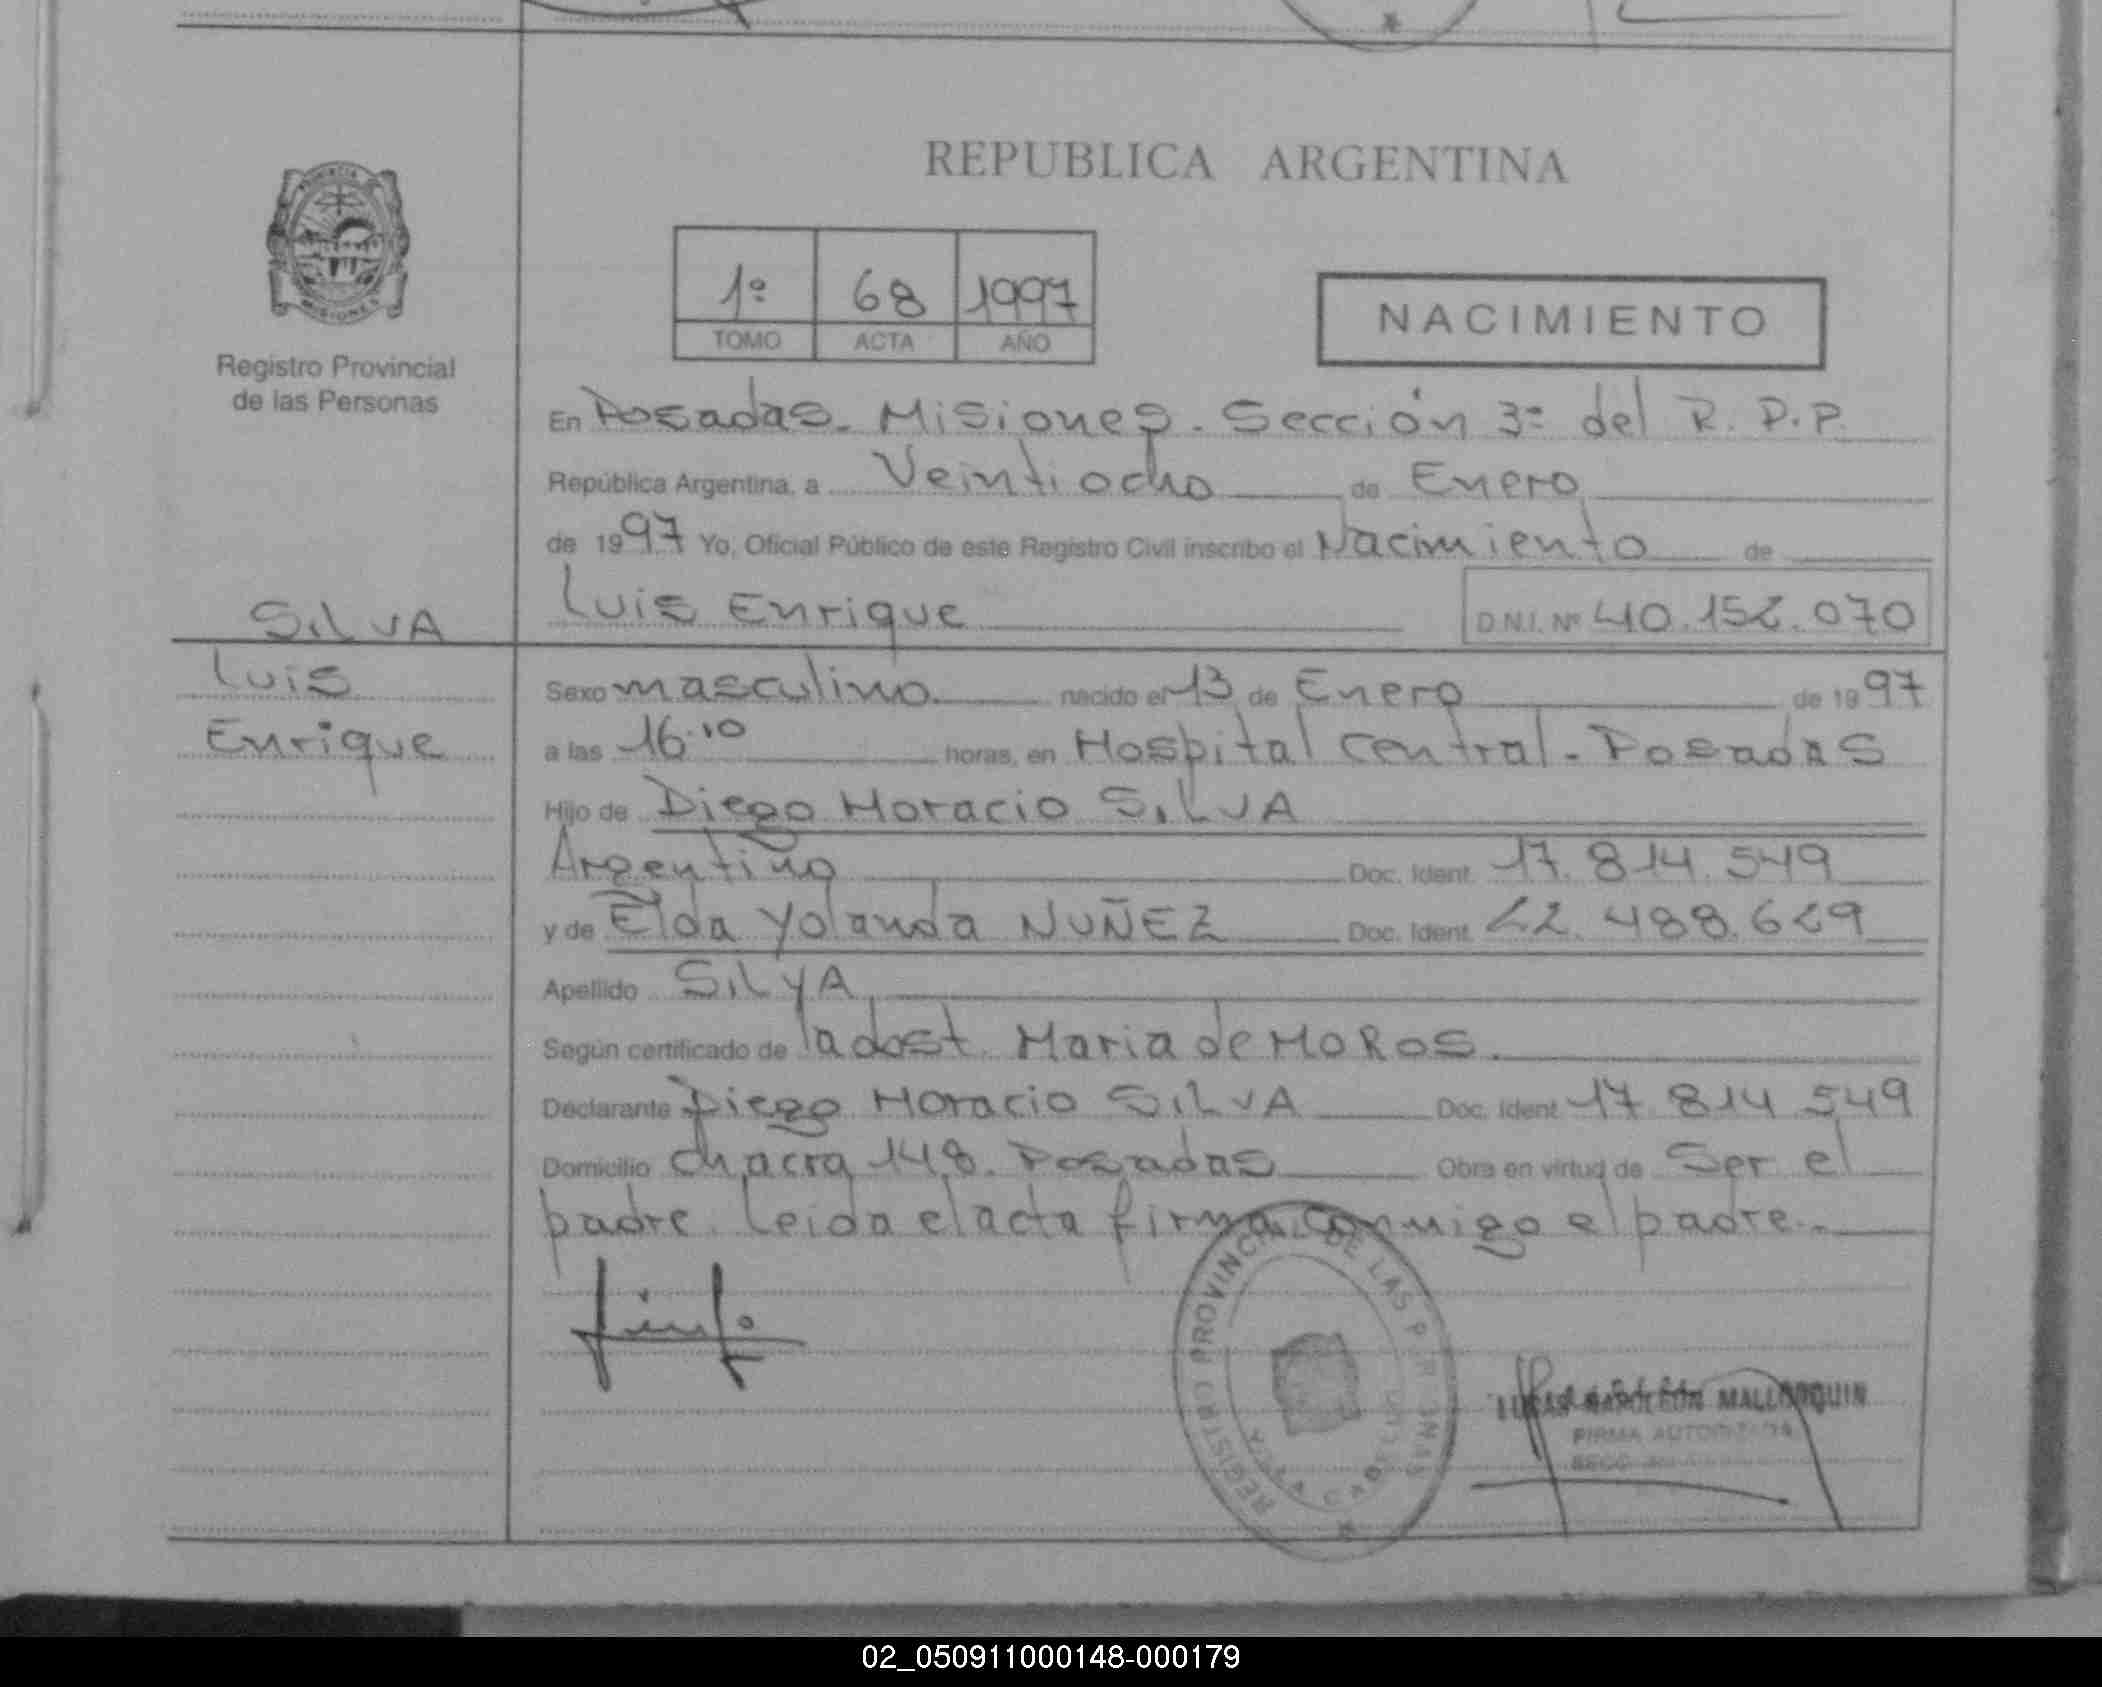 REPUBLICA ARGENTINA
1º 68 1997
TOMO ACTA AÑO
NACIMIENTO
Registro Provincial
de las Personas
SILVA
Luis
Enrique
En Posadas. Misiones. Sección 3ª del R.P.P.
República Argentina, a Veintiocho de Enero
de 1997 Yo, Oficial Público de este Registro Civil inscribo el Nacimiento de
Luis Enrique D.N.I. Nº 40.152.070
Sexo masculino nacido el 13 de Enero de 1997
a las 16.10 horas, en Hospital Central. Posadas
Hijo de Diego Horacio SILVA
Argentino Doc. Ident. 17.814.549
y de Elda Yolanda NUÑEZ Doc. Ident. 22.488.629
Apellido SILVA
Según certificado de la dost. Maria de MOROS.
Declarante Diego Horacio SILVA Doc. Ident. 17.814.549
Domicilio Chacra 148. Posadas Obra en virtud de Ser el
padre. Leida el acta firma conmigo el padre.
REGISTRO PROVINCIAL DE LAS PERSONAS
VILLA CABELLO
LUCAS NAPOLEON MALLORQUIN
FIRMA AUTORIZADA
SECC
02_050911000148-000179